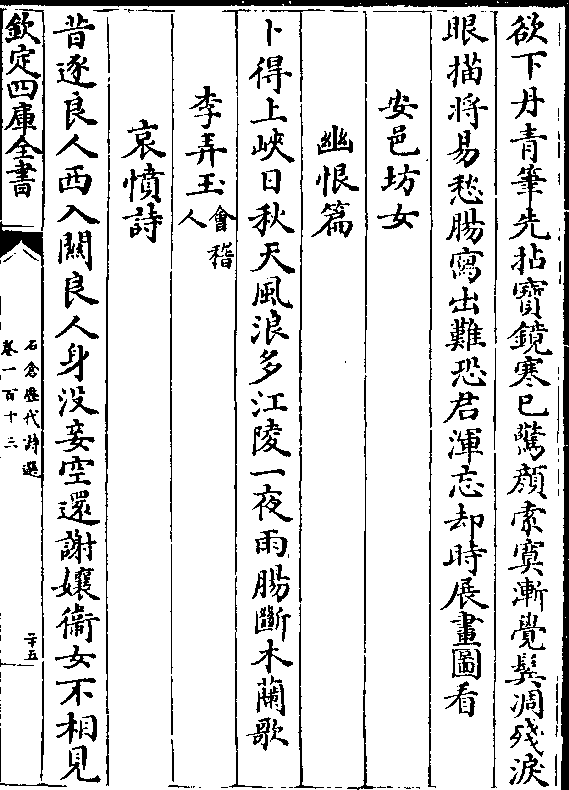 欲下丹青筆先拈寶鏡寒已驚顏索寞漸覺鬢凋殘淚
眼描將易愁腸寫出難恐君渾忘却時展畫圖看
安邑坊女
幽恨篇
卜得上峽日秋天風浪多江陵一夜雨腸斷木蘭歌
李弄玉會稽人
哀憤詩
昔逐良人西入關良人身没妾空還謝孃衞女不相見
欽定四庫全書
石倉歷代詩選
卷一百十三
二十五